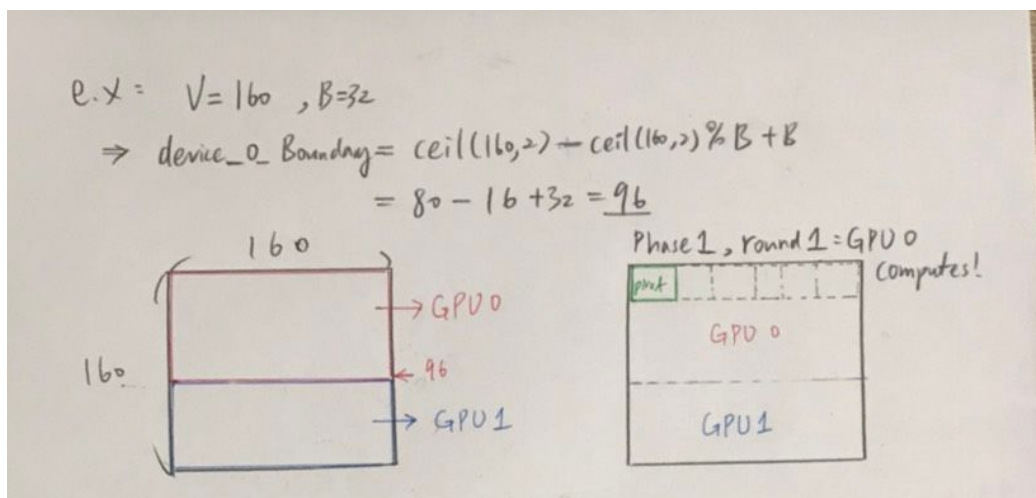 e.x : V=160 , B=32
⇒ device_0_Boundary = ceil(160,2) - ceil(160,2)%B + B
= 80 - 16 +32 = 96
160
160
→ GPU0
← 96
→ GPU1
Phase1, round1 = GPU0
computes!
pivot
GPU 0
GPU1